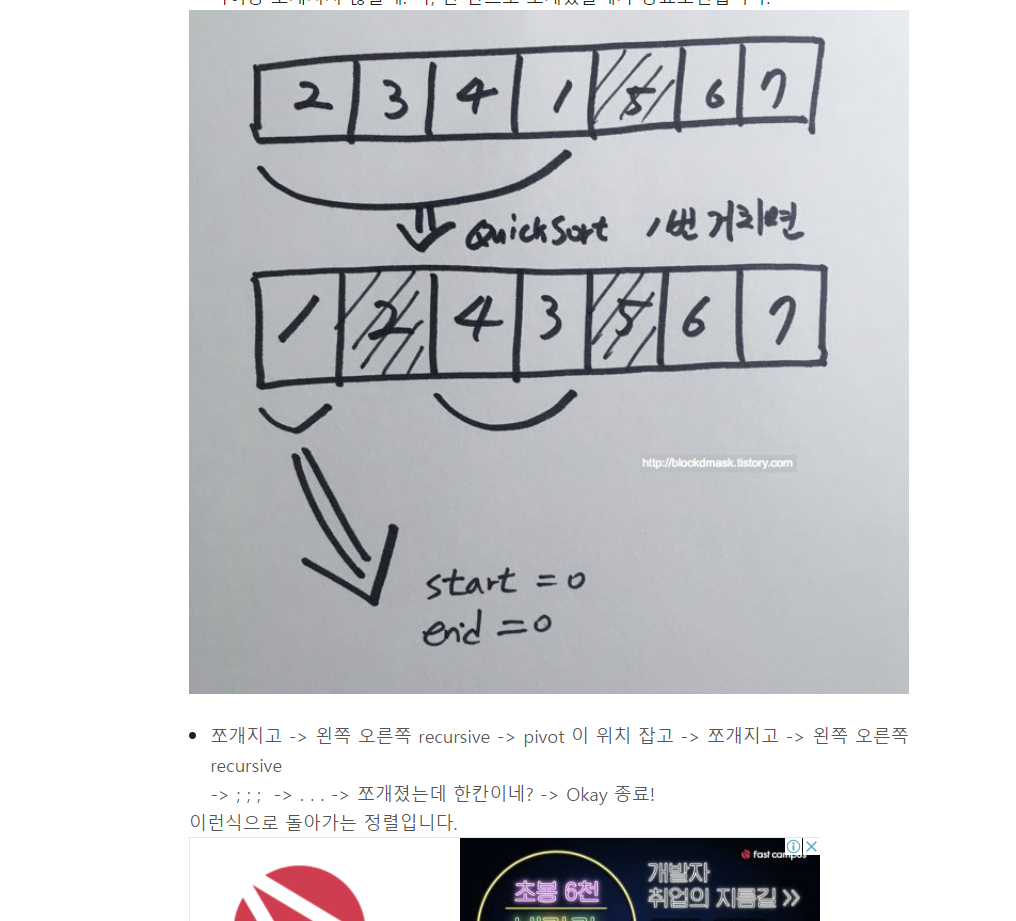 2 3 4 1 5 6 7
QuickSort 1번 거치면
1 2 4 3 5 6 7
http://blockdmask.tistory.com
start = 0
end = 0
쪼개지고 -> 왼쪽 오른쪽 recursive -> pivot 이 위치 잡고 -> 쪼개지고 -> 왼쪽 오른쪽
recursive
-> ; ; ; -> . . . -> 쪼개졌는데 한칸이네? -> Okay 종료!
이런식으로 돌아가는 정렬입니다.
fast campus
개발자
초봉 6천
취업의 지름길 >>